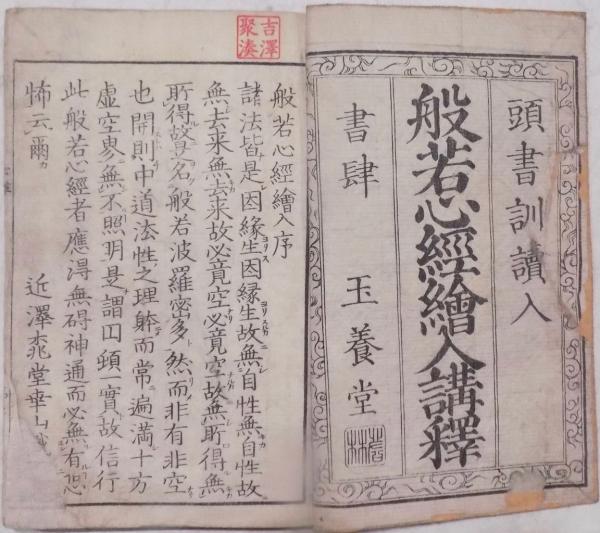 頭書訓讀入
般若心經繪入講釋
書肆 玉養堂
吉澤
聚湊
般若心經繪入序
諸法皆是因緣生因緣生故無自性無自性故
無去来無去来故必竟空必竟空故無所得無
所得故是名般若波羅密多然而非有非空
也開則中道法性之理躰而常遍満十方
虚空界無不照明是謂四頓一實故信行
此般若心經者應得無碍神通而必無有恐
怖云爾
近澤 堂 山